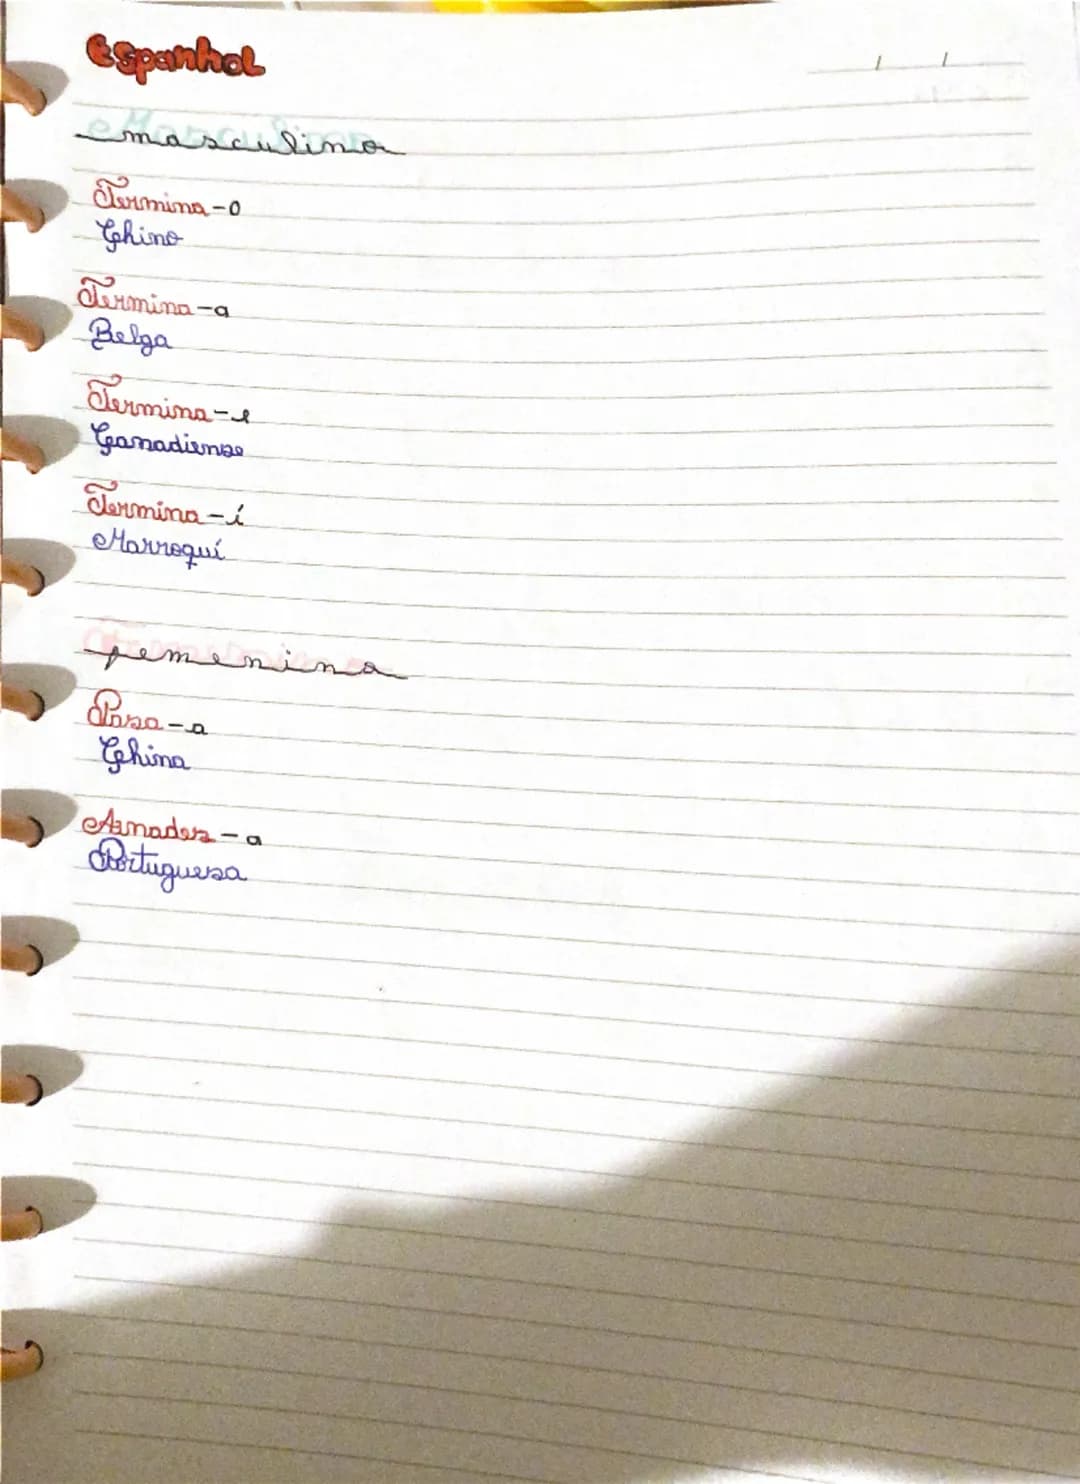 Espanhol
/ /
masculino
Termina-o
Chino
Termina-a
Belga
Termina-e
Canadiense
Termina-í
Marroquí
femenina
Pasa-a
China
-a
Portuguesa